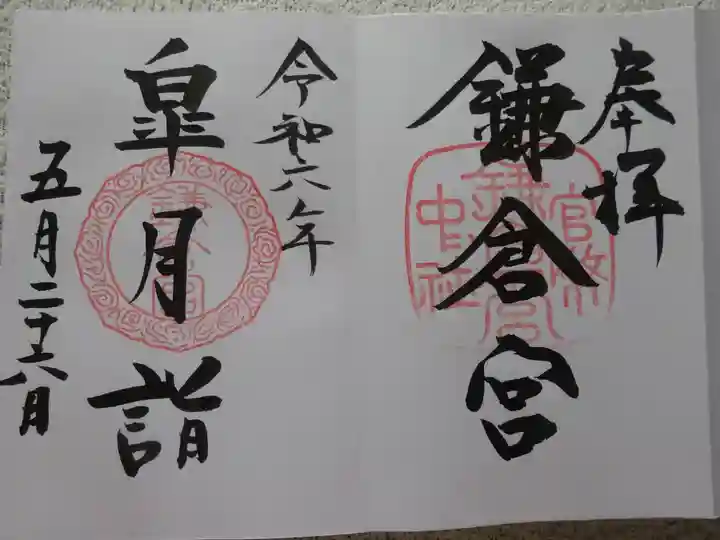 奉拝
鎌倉宮
官幣
中社
鎌倉宮
令和六年
皐月詣
鎌倉宮
五月二十六日